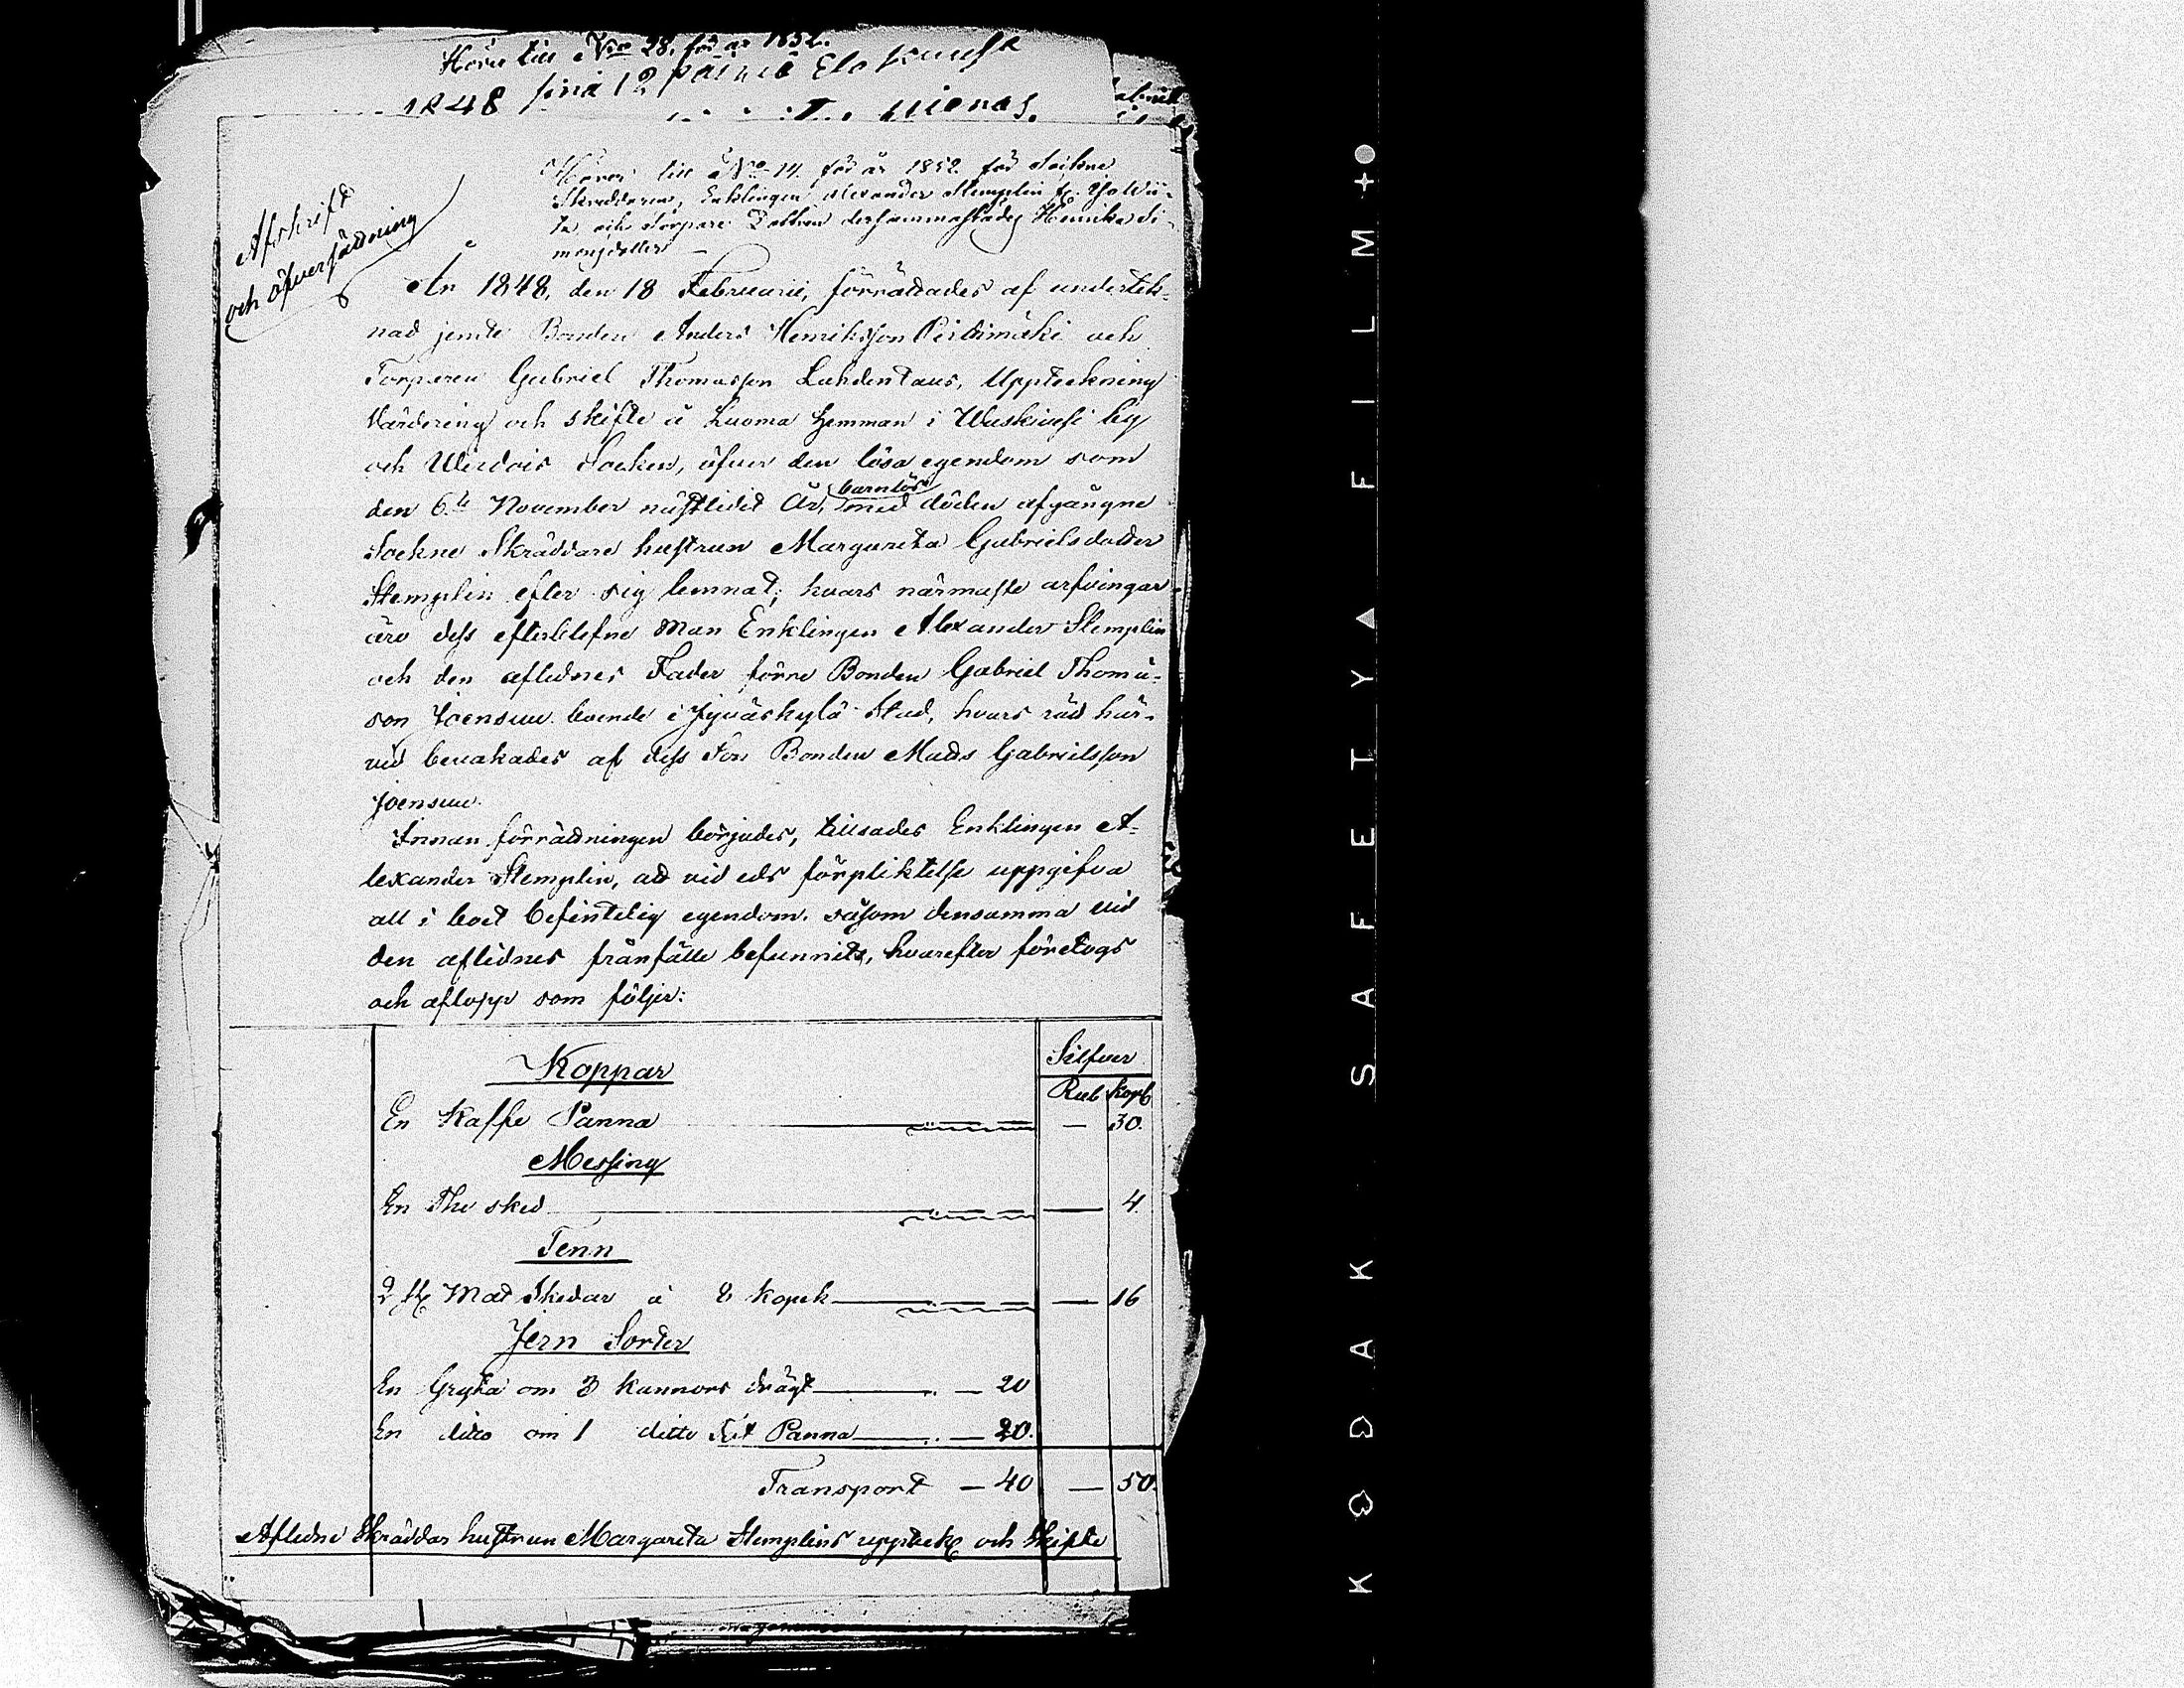 Hörer till No 28. för år 1852.
1848 sinä 12 päivä Elokuusa
Hörer till No 14. för år 1852 för Sockne
Skräddaren, Enklingen Alexander Stemplin fr. Yli Wii-
ta och Torpare Dottren dersammastädes Henrika Si-
monsdotter
Afskrift
och öfversättning
År 1848, den 18 Februarii, förrättades af underteck-
nad jemte Bonden Anders Henriksson Peldimäki och
Torparen Gabriel Thomasson Lahdentaus, Uppteckning
Värdering och skifte å Luoma hemman i Waskivesi by
och Wirdois Socken, öfver den lösa egendom som
den 6te November nästledit År, barnlös med döden afgångne
Sockne Skräddare hustrun Margareta Gabrielsdotter
Stemplin efter sig lemnat; hvars närmaste arfvingar
äro dess efterblefne Man Enklingen Alexander Stemplin
och den aflidnes Fader förre Bonden Gabriel Thomas-
son Joensuu boende i Jyväskylä Stad, hvars rätt här-
vid bevakades af dess Son Bonden Matts Gabrielsson
Joensuu.
Innan förrättningen börjades, tillsades Enklingen A-
lexander Stemplin, att vid eds förpliktelse uppgifva
all i boet befintelig egendom, såsom densamma vid
den aflidnes frånfälle befunnits, hvarefter företogs
och aflopp som följer:
Silfver
Koppar
Rub kop
En Kaffe Panna — 30.
Messing
En The sked — 4.
Tenn
2 st Mat Skedar à 8 kopek — 16
Jern Sorter
En Gryta om 3 kannors drägt — 20
En ditto om 1 ditto Panna — 20.
Transport — 40 — 50.
Aflidne Skräddar hustrun Margareta Stemplins uppteck och Skifte
KODAK SAFETY FILM